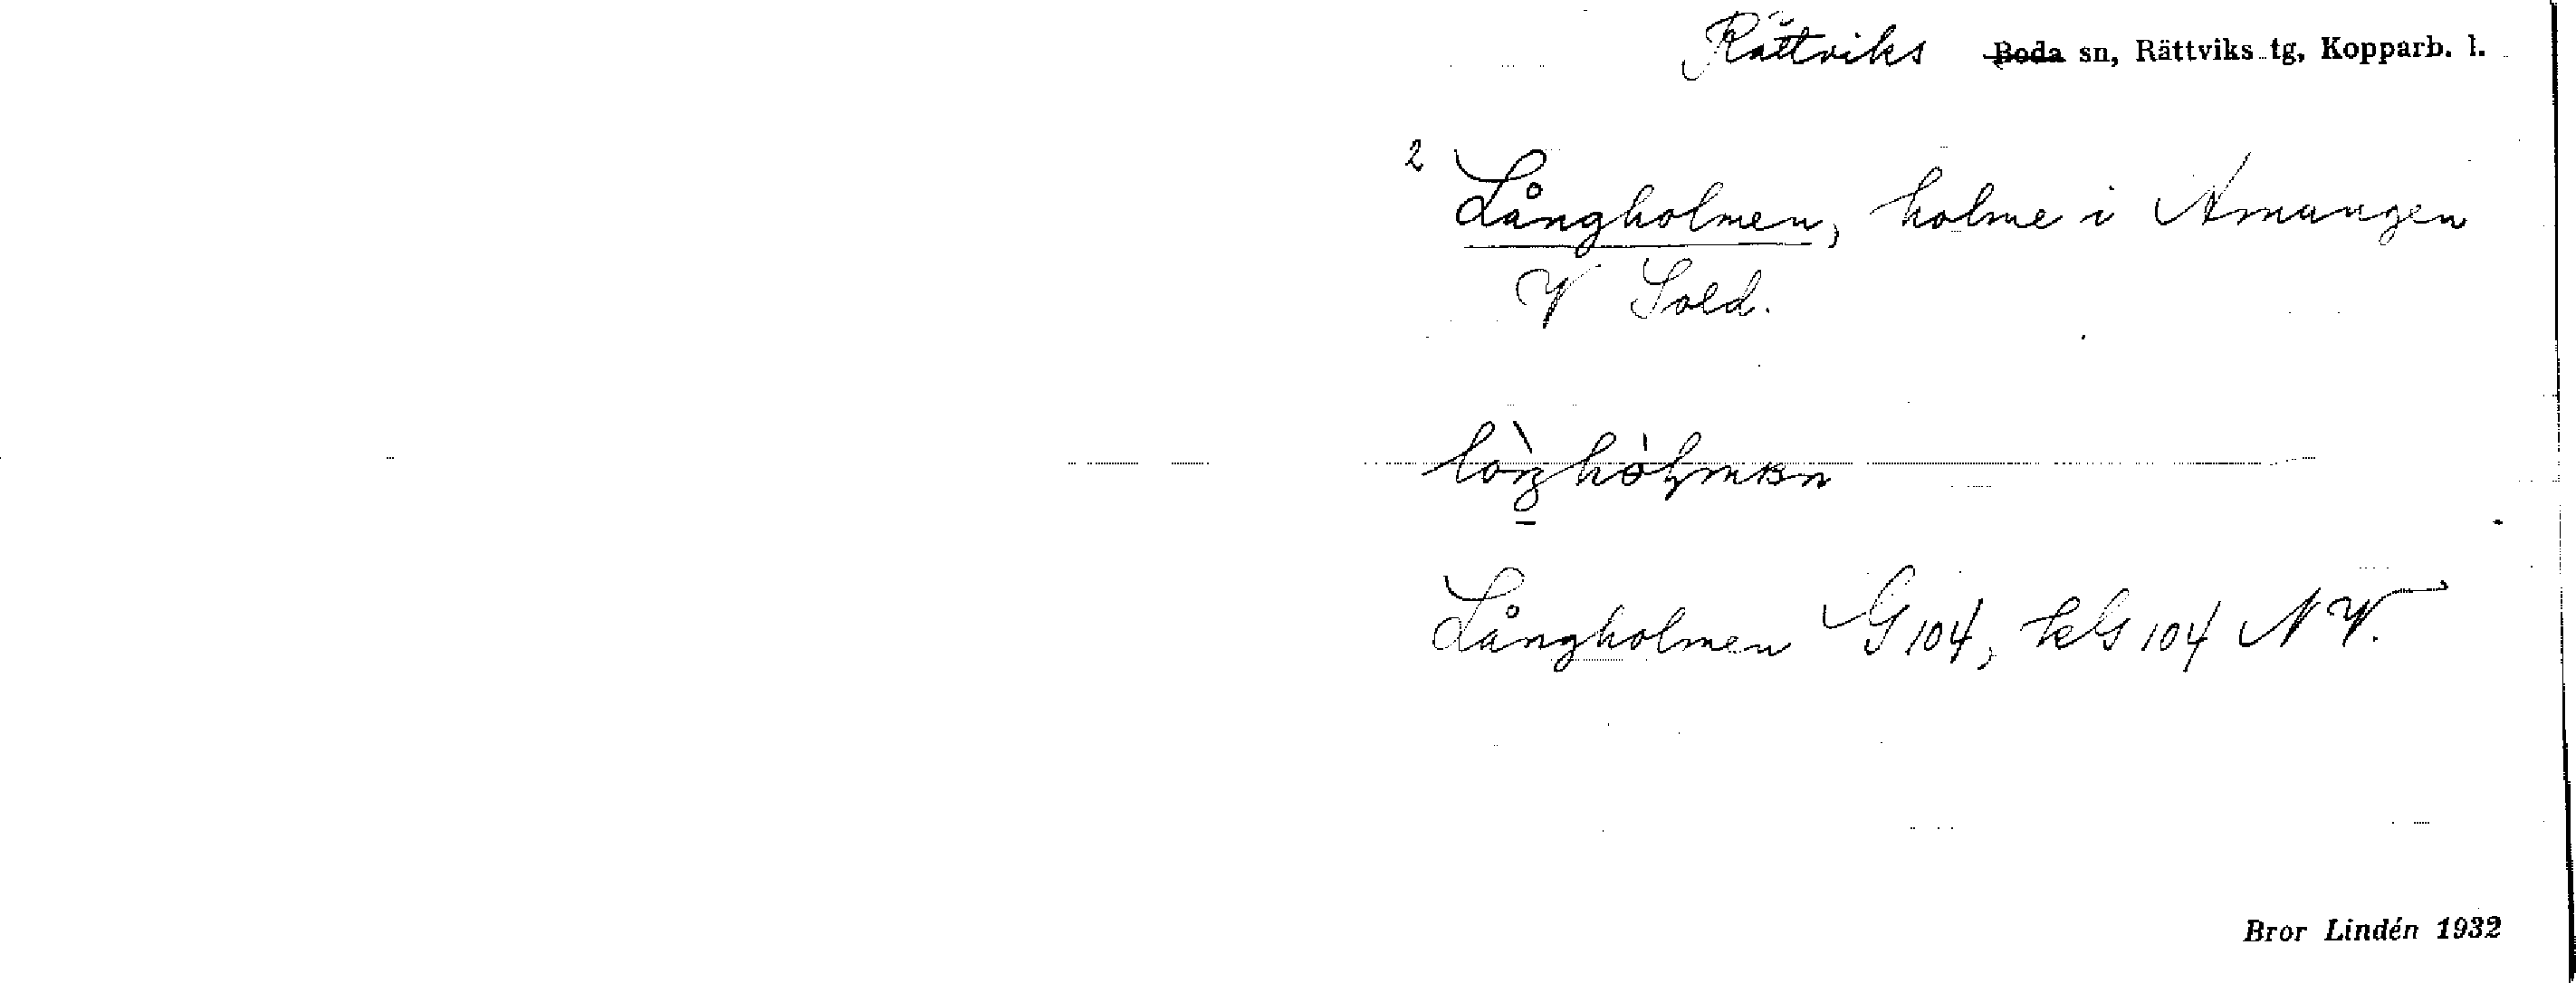 Rättviks Boda sn, Rättviks tg, Kopparb. l.
2 Långholmen, holme i Amungen
V Sold.
Långholmen G 104, kG 104 NV.
Bror Lindén 1932